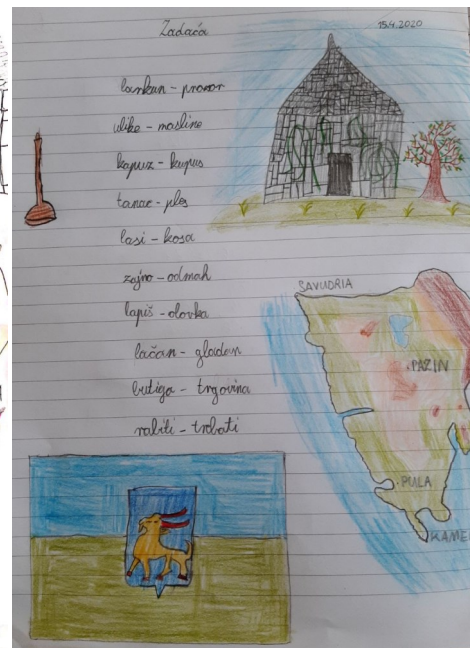 Zadaća
15.4.2020
lankun - prozor
ulike - masline
kapuz - kupus
tanac - ples
lasi - kosa
zajno - odmah
lapiš - olovka
lačan - gladan
butiga - trgovina
rabiti - trebati
SAVUDRIA
PAZIN
PULA
KAME